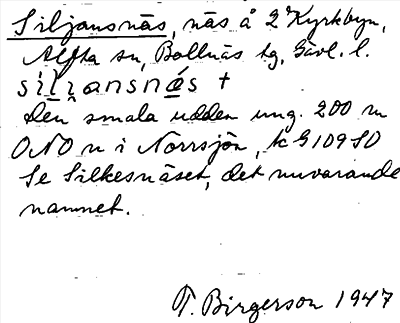 Siljansnäs, näs å 2ª Kyrkbyn,
Alfta sn, Bollnäs tg, Gävl. l.
siljansnæs +
den smala udden ung. 200 m
ONO n i Norrsjön, k G 109 SO
Se Silkesnäset, det nuvarande
namnet.
T. Birgerson 1947